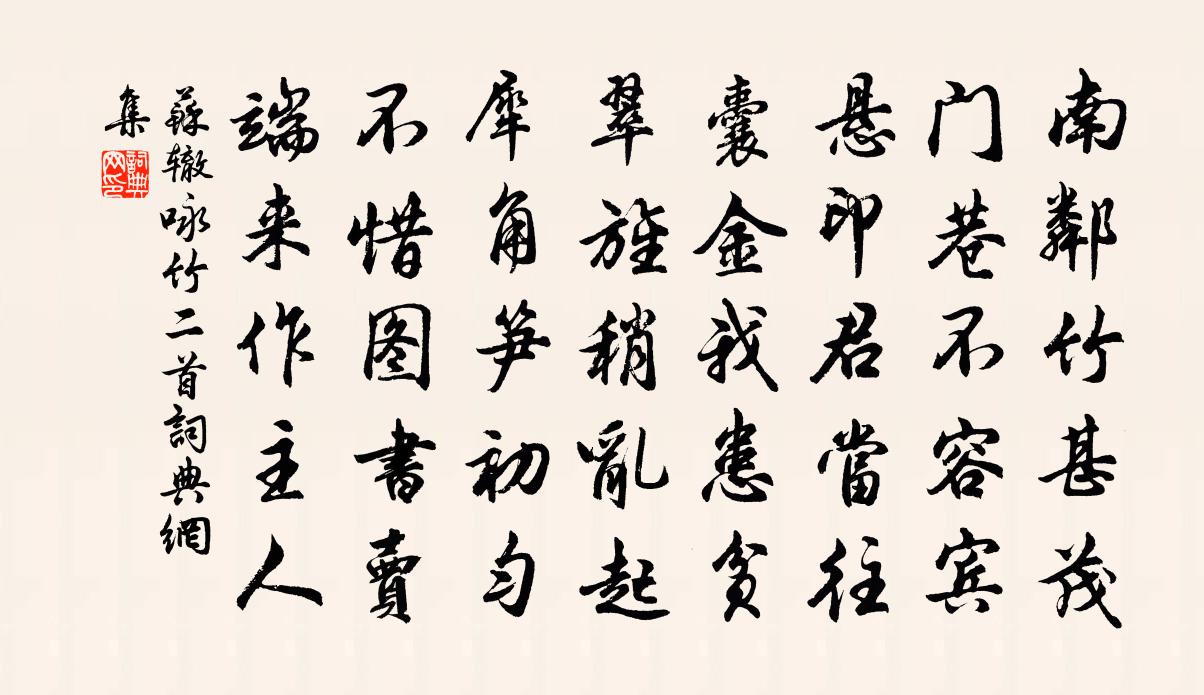 南鄰竹甚茂
门巷不容宾
悬印君當往
囊金我患贫
翠旌稍亂起
犀角笋初匀
不惜图書賣
端来作主人
蘇辙咏竹二首詞典網
集
詞典网印